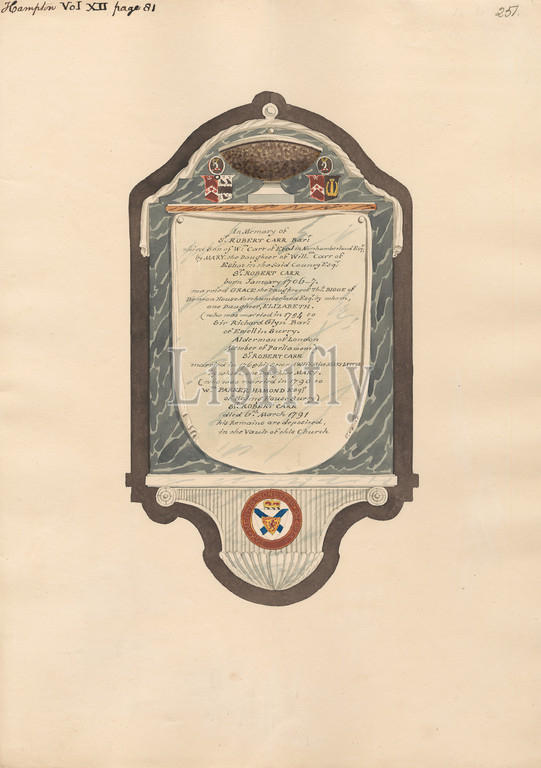 Hampton Vol XII page 81
251.
In Memory of
Sr. ROBERT CARR Bart.
Son of Wm. Carr of Etal in Northumberland Esqr.
by MARY, the Daughter of Will. Carr of
Eshot in the Said County Esqr.
Sr. ROBERT CARR
born January 1706-7.
married GRACE, the Daughter of Thos. BIGGE of
House Northumberland Esqr. by whom,
one Daughter, ELIZABETH.
(who was married in 1754 to
Sir Richard Glyn Bart.
of Ewell in Surry.
Alderman of London
Member of Parliament)
Sr. ROBERT CARR
married in
MARY.
(who was married in 1790 to
Wm. PARKER HAMOND Esqr.
of House Surry)
Sr. ROBERT CARR
died 6th. March 1791
his Remains are deposited,
in the Vault of this Church
Librifly